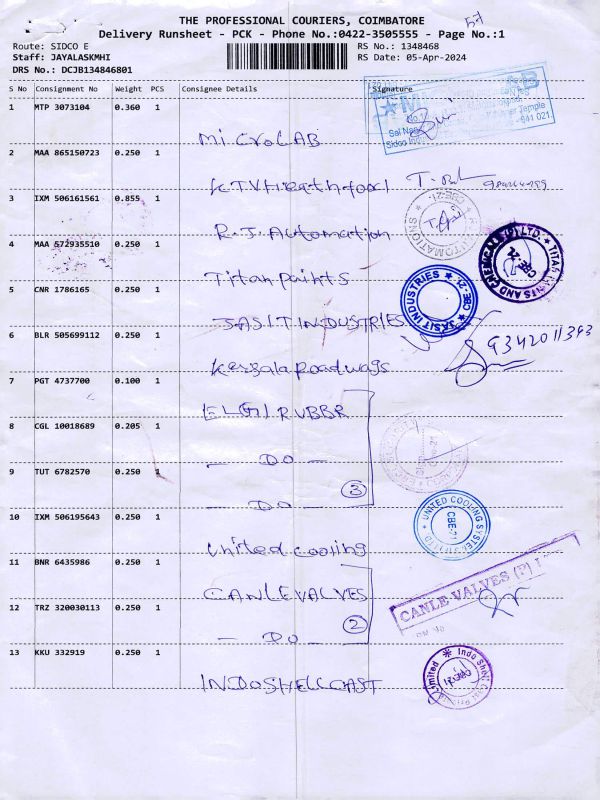 THE PROFESSIONAL COURIERS, COIMBATORE
Delivery Runsheet - PCK - Phone No.:0422-3505555 - Page No.:1
Route: SIDCO E
Staff: JAYALASKMHI
DRS No.: DCJB134846801
RS No.: 1348468
RS Date: 05-Apr-2024
S No Consignment No Weight PCS Consignee Details Signature
1 MTP 3073104 0.360 1
MicroLAB
2 MAA 865150723 0.250 1
KTVHealthfood
3 IXM 506161561 0.855 1
R.J. Automation
4 MAA 572935510 0.250 1
Titan paints
5 CNR 1786165 0.250 1
JASIT INDUSTRIES
JASIT INDUSTRIES CBE-21
6 BLR 505699112 0.250 1
9342011393
Kerala Roadways
7 PGT 4737700 0.100 1
ELGI RUBBR
8 CGL 10018689 0.205 1
- DO -
9 TUT 6782570 0.250 1
- DO - 3
10 IXM 506195643 0.250 1
United cooling
UNITED COOLING SYSTEMS
CBE-21
11 BNR 6435986 0.250 1
CANLEVALVES
CANLE VALVES (P)
12 TRZ 320030113 0.250 1
- DO - 2
13 KKU 332919 0.250 1
INDOSHELLCAST